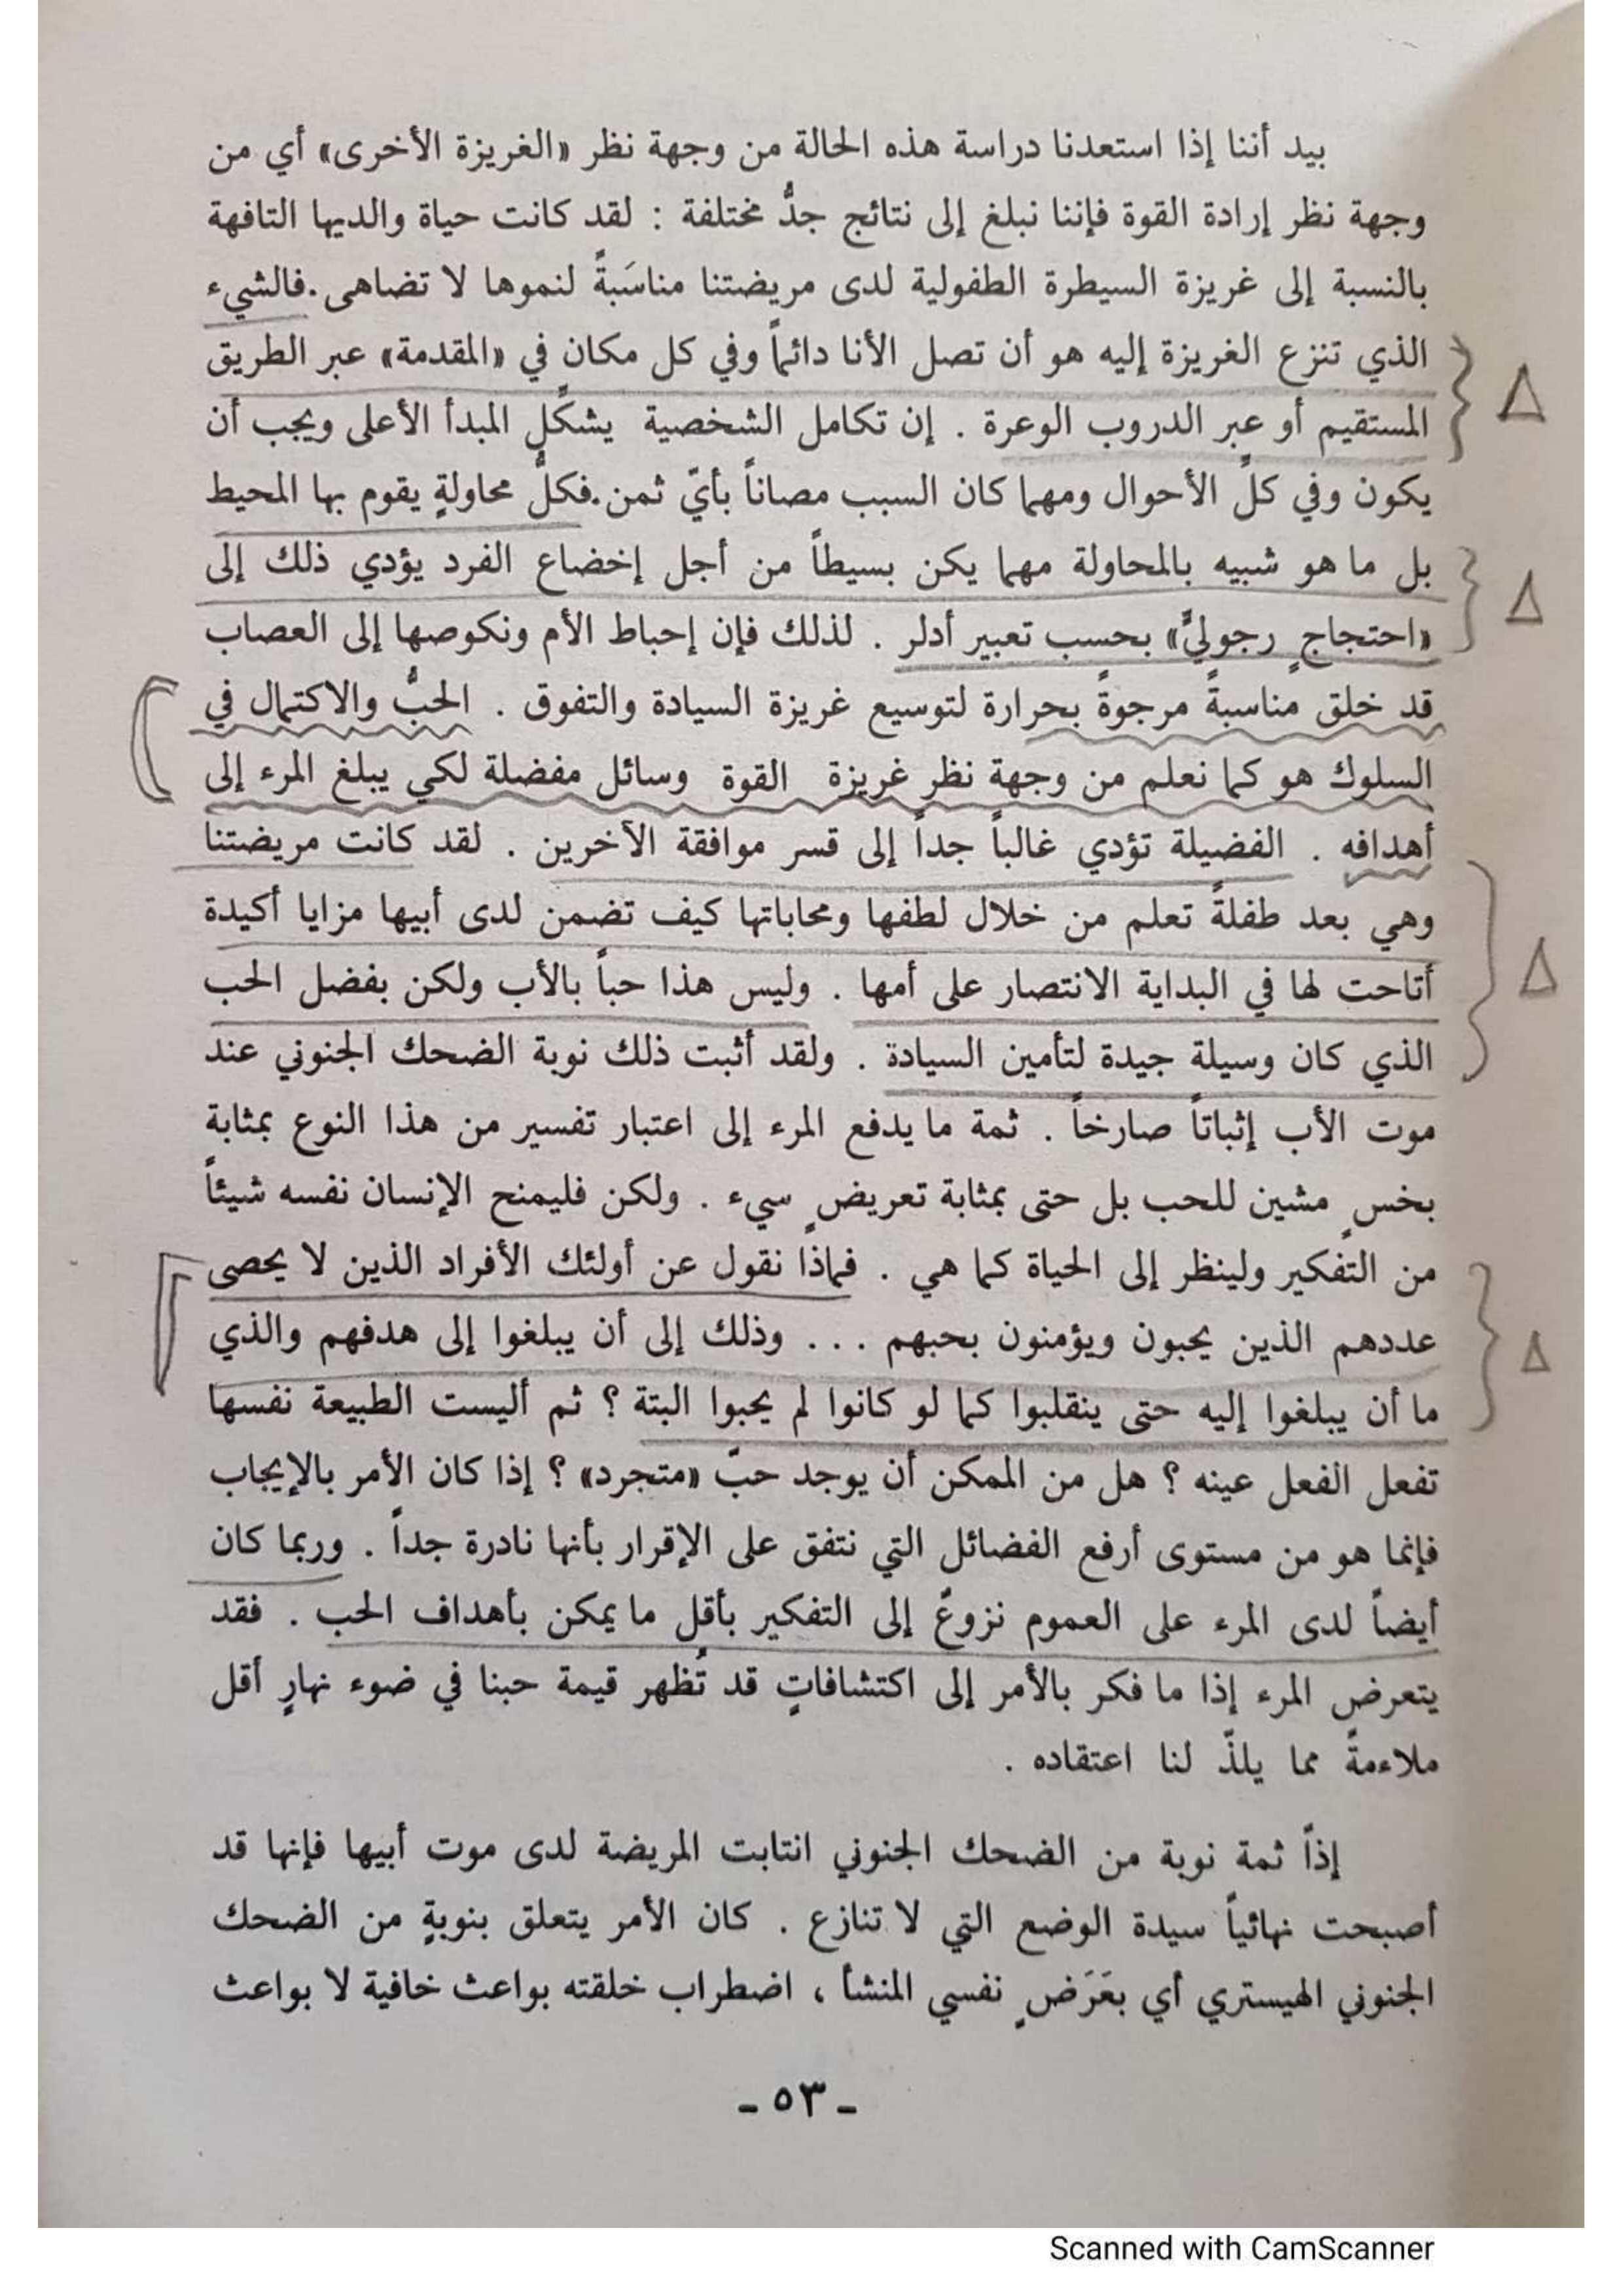 بيد أننا إذا استعدنا دراسة هذه الحالة من وجهة نظر «الغريزة الأخرى» أي من
وجهة نظر إرادة القوة فإننا نبلغ إلى نتائج جدُّ مختلفة : لقد كانت حياة والديها التافهة
بالنسبة إلى غريزة السيطرة الطفولية لدى مريضتنا مناسَبةً لنموها لا تضاهى . فالشيء
الذي تنزع الغريزة إليه هو أن تصل الأنا دائماً وفي كل مكان في «المقدمة» عبر الطريق
المستقيم أو عبر الدروب الوعرة . إن تكامل الشخصية يشكّل المبدأ الأعلى ويجب أن
يكون وفي كلّ الأحوال ومهما كان السبب مصاناً بأيّ ثمن . فكلُّ محاولةٍ يقوم بها المحيط
بل ما هو شبيه بالمحاولة مهما يكن بسيطاً من أجل إخضاع الفرد يؤدي ذلك إلى
«احتجاجٍ رجوليٍّ» بحسب تعبير أدلر . لذلك فإن إحباط الأم ونكوصها إلى العصاب
قد خلق مناسبةً مرجوةً بحرارة لتوسيع غريزة السيادة والتفوق . الحبُّ والاكتمال في
السلوك هو كما نعلم من وجهة نظر غريزة القوة وسائل مفضلة لكي يبلغ المرء إلى
أهدافه . الفضيلة تؤدي غالباً جداً إلى قسر موافقة الآخرين . لقد كانت مريضتنا
وهي بعد طفلةً تعلم من خلال لطفها ومحاباتها كيف تضمن لدى أبيها مزايا أكيدة
أتاحت لها في البداية الانتصار على أمها . وليس هذا حباً بالأب ولكن بفضل الحب
الذي كان وسيلة جيدة لتأمين السيادة . ولقد أثبت ذلك نوبة الضحك الجنوني عند
موت الأب إثباتاً صارخاً . ثمة ما يدفع المرء إلى اعتبار تفسير من هذا النوع بمثابة
بخسٍ مشين للحب بل حتى بمثابة تعريضٍ سيء . ولكن فليمنح الإنسان نفسه شيئاً
من التفكير ولينظر إلى الحياة كما هي . فماذا نقول عن أولئك الأفراد الذين لا يحصى
عددهم الذين يحبون ويؤمنون بحبهم ... وذلك إلى أن يبلغوا إلى هدفهم والذي
ما أن يبلغوا إليه حتى ينقلبوا كما لو كانوا لم يحبوا البتة ؟ ثم أليست الطبيعة نفسها
تفعل الفعل عينه ؟ هل من الممكن أن يوجد حبّ «متجرد» ؟ إذا كان الأمر بالإيجاب
فإنما هو من مستوى أرفع الفضائل التي نتفق على الإقرار بأنها نادرة جداً . وربما كان
أيضاً لدى المرء على العموم نزوعٌ إلى التفكير بأقل ما يمكن بأهداف الحب . فقد
يتعرض المرء إذا ما فكر بالأمر إلى اكتشافاتٍ قد تُظهر قيمة حبنا في ضوء نهارٍ أقل
ملاءمةً مما يلذّ لنا اعتقاده .
إذاً ثمة نوبة من الضحك الجنوني انتابت المريضة لدى موت أبيها فإنها قد
أصبحت نهائياً سيدة الوضع التي لا تنازع . كان الأمر يتعلق بنوبةٍ من الضحك
الجنوني الهيستري أي بعَرَضٍ نفسي المنشأ ، اضطراب خلقته بواعث خافية لا بواعث
ـ ٥٣ ـ
Scanned with CamScanner